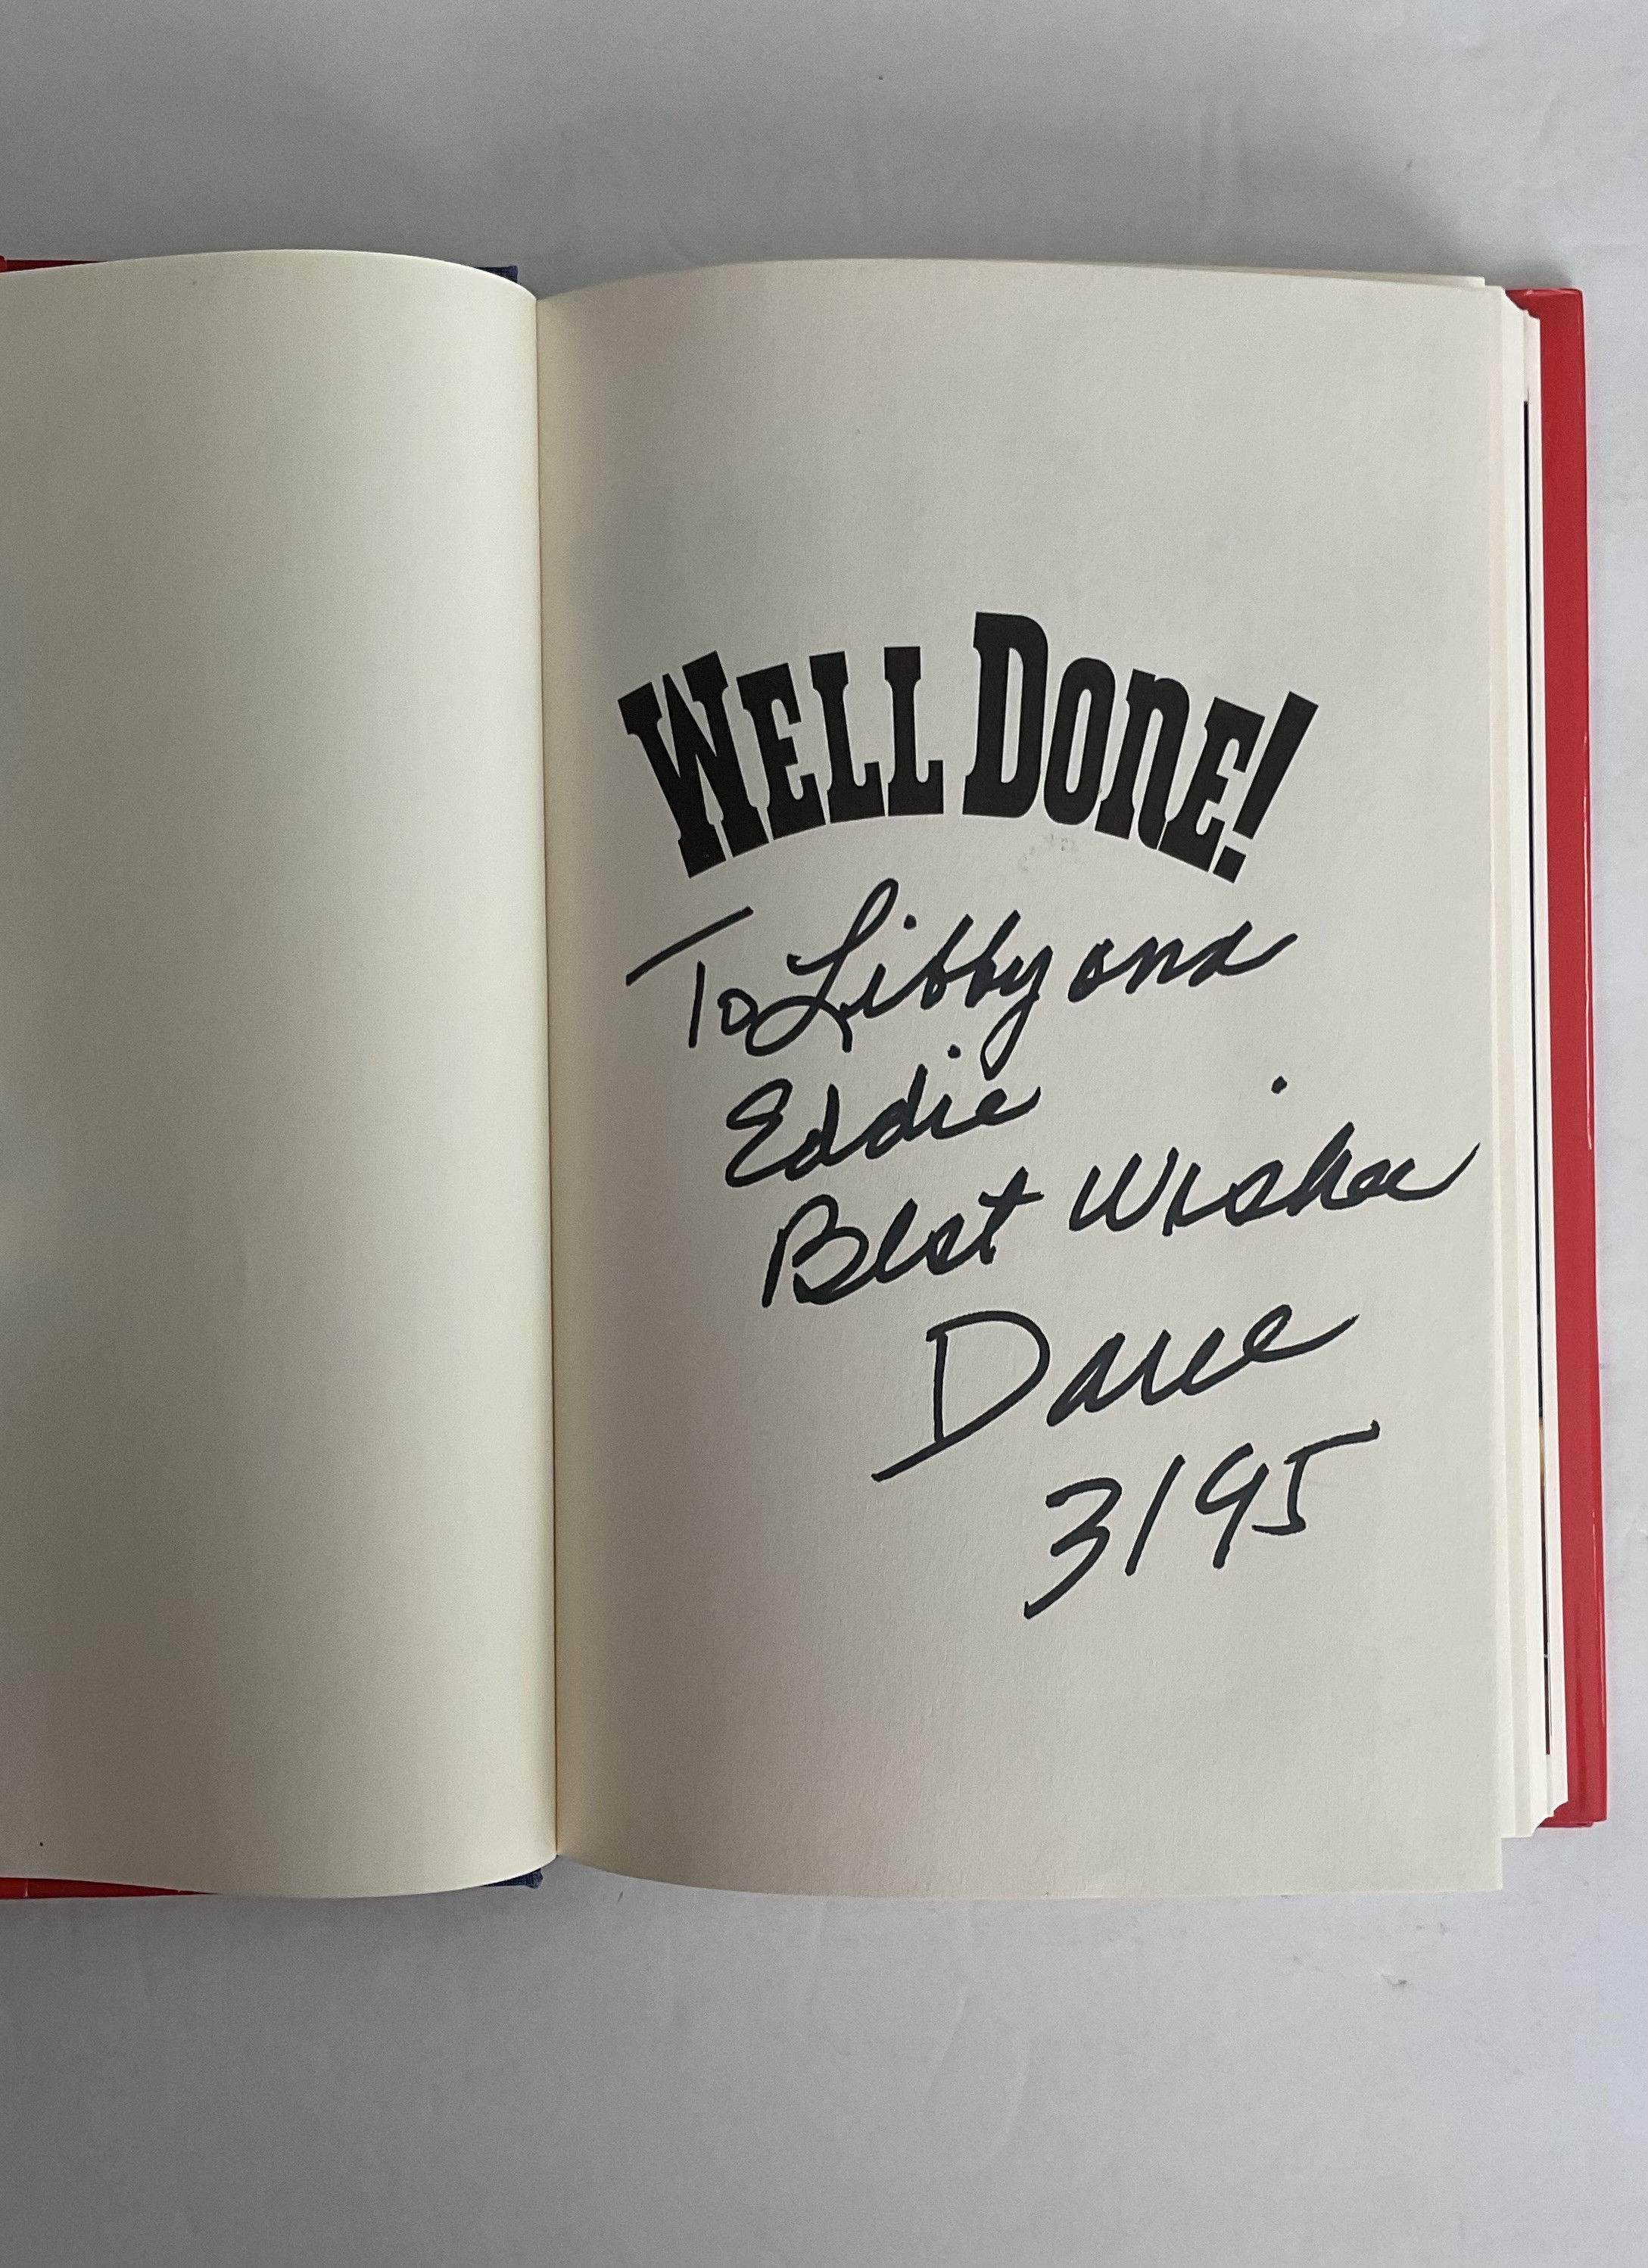 WELL DONE!
To Libby and
Eddie
Best Wishes
Dave
3/95